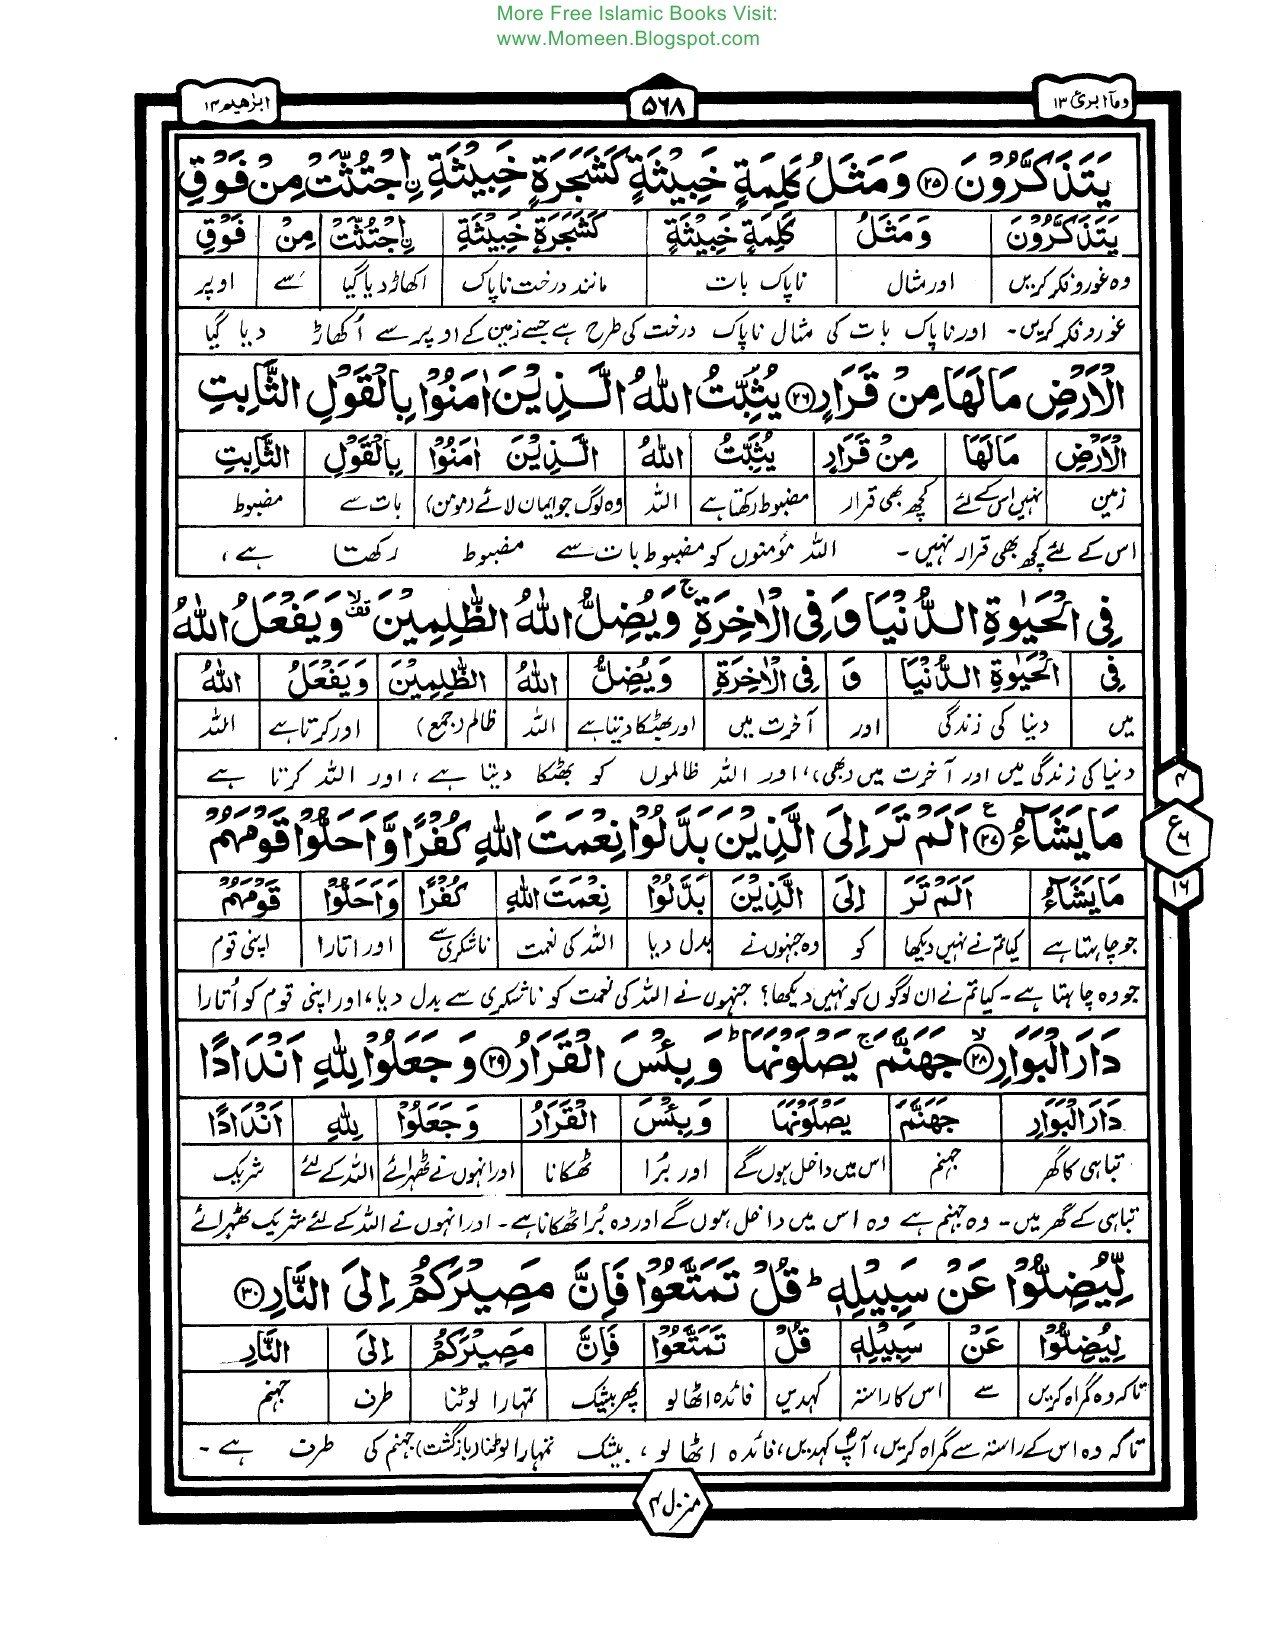 More Free Islamic Books Visit:
www.Momeen.Blogspot.com
ابرٰهیم ۱۴
۵۶۸
ومآ ابرئ ۱۳
یَتَذَكَّرُوْنَ ۲۵ وَ مَثَلُ كَلِمَةٍ خَبِیْثَةٍ كَشَجَرَةٍ خَبِیْثَةِ ِ۟اجْتُثَّتْ مِنْ فَوْقِ
یَتَذَكَّرُوْنَ وَ مَثَلُ كَلِمَةٍ خَبِیْثَةٍ كَشَجَرَةٍ خَبِیْثَةِ ِ۟اجْتُثَّتْ مِنْ فَوْقِ
وہ غور و فکر کریں اور مثال ناپاک بات مانند درخت ناپاک اکھاڑ دیا گیا سے اوپر
غور و فکر کریں۔ اور ناپاک بات کی مثال ناپاک درخت کی طرح ہے جسے زمین کے اوپر سے اُکھاڑ دیا گیا
الْاَرْضِ مَا لَهَا مِنْ قَرَارٍ ۲۶ یُثَبِّتُ اللّٰهُ الَّذِیْنَ اٰمَنُوْا بِالْقَوْلِ الثَّابِتِ
الْاَرْضِ مَا لَهَا مِنْ قَرَارٍ یُثَبِّتُ اللّٰهُ الَّذِیْنَ اٰمَنُوْا بِالْقَوْلِ الثَّابِتِ
زمین نہیں اس کے لئے کچھ بھی قرار مضبوط رکھتا ہے اللہ وہ لوگ جو ایمان لائے (مومن) بات سے مضبوط
اس کے لئے کچھ بھی قرار نہیں۔ اللہ مؤمنوں کو مضبوط بات سے مضبوط رکھتا ہے،
فِی الْحَیٰوةِ الدُّنْیَا وَ فِی الْاٰخِرَةِ ۚ وَ یُضِلُّ اللّٰهُ الظّٰلِمِیْنَ وَ یَفْعَلُ اللّٰهُ
فِی الْحَیٰوةِ الدُّنْیَا وَ فِی الْاٰخِرَةِ وَ یُضِلُّ اللّٰهُ الظّٰلِمِیْنَ وَ یَفْعَلُ اللّٰهُ
میں دنیا کی زندگی اور آخرت میں اور بھٹکا دیتا ہے اللہ ظالم (جمع) اور کرتا ہے اللہ
دنیا کی زندگی میں اور آخرت میں (بھی)، اور اللہ ظالموں کو بھٹکا دیتا ہے، اور اللہ کرتا ہے
۴
مَا یَشَآءُ ۲۷ ع اَلَمْ تَرَ اِلَی الَّذِیْنَ بَدَّلُوْا نِعْمَتَ اللّٰهِ كُفْرًا وَّ اَحَلُّوْا قَوْمَهُمْ
ع ۶
مَا یَشَآءُ اَلَمْ تَرَ اِلَی الَّذِیْنَ بَدَّلُوْا نِعْمَتَ اللّٰهِ كُفْرًا وَ اَحَلُّوْا قَوْمَهُمْ
۱۶
جو چاہتا ہے کیا تم نے نہیں دیکھا کو وہ جنہوں نے بدل دیا اللہ کی نعمت ناشکری سے اور اتارا اپنی قوم
جو وہ چاہتا ہے۔ کیا تم نے ان لوگوں کو نہیں دیکھا؟ جنہوں نے اللہ کی نعمت کو ناشکری سے بدل دیا، اور اپنی قوم کو اُتارا
دَارَ الْبَوَارِ ۲۸ ۙ جَهَنَّمَ ۚ یَصْلَوْنَهَا ؕ وَ بِئْسَ الْقَرَارُ ۲۹ وَ جَعَلُوْا لِلّٰهِ اَنْدَادًا
دَارَ الْبَوَارِ جَهَنَّمَ یَصْلَوْنَهَا وَ بِئْسَ الْقَرَارُ وَ جَعَلُوْا لِلّٰهِ اَنْدَادًا
تباہی کا گھر جہنم اس میں داخل ہوں گے اور بُرا ٹھکانا اور انہوں نے ٹھہرائے اللہ کے لئے شریک
تباہی کے گھر میں۔ وہ جہنم ہے وہ اس میں داخل ہوں گے اور وہ بُرا ٹھکانا ہے۔ اور انہوں نے اللہ کے لئے شریک ٹھہرائے
لِّیُضِلُّوْا عَنْ سَبِیْلِهٖ ؕ قُلْ تَمَتَّعُوْا فَاِنَّ مَصِیْرَكُمْ اِلَی النَّارِ ۳۰
لِیُضِلُّوْا عَنْ سَبِیْلِهٖ قُلْ تَمَتَّعُوْا فَاِنَّ مَصِیْرَكُمْ اِلَی النَّارِ
تاکہ وہ گمراہ کریں سے اس کا راستہ کہدیں فائدہ اٹھا لو پھر بیشک تمہارا لوٹنا طرف جہنم
تاکہ وہ اس کے راستہ سے گمراہ کریں، آپؐ کہدیں، فائدہ اٹھا لو، بیشک تمہارا لوٹنا (بازگشت) جہنم کی طرف ہے۔
منزل ۳